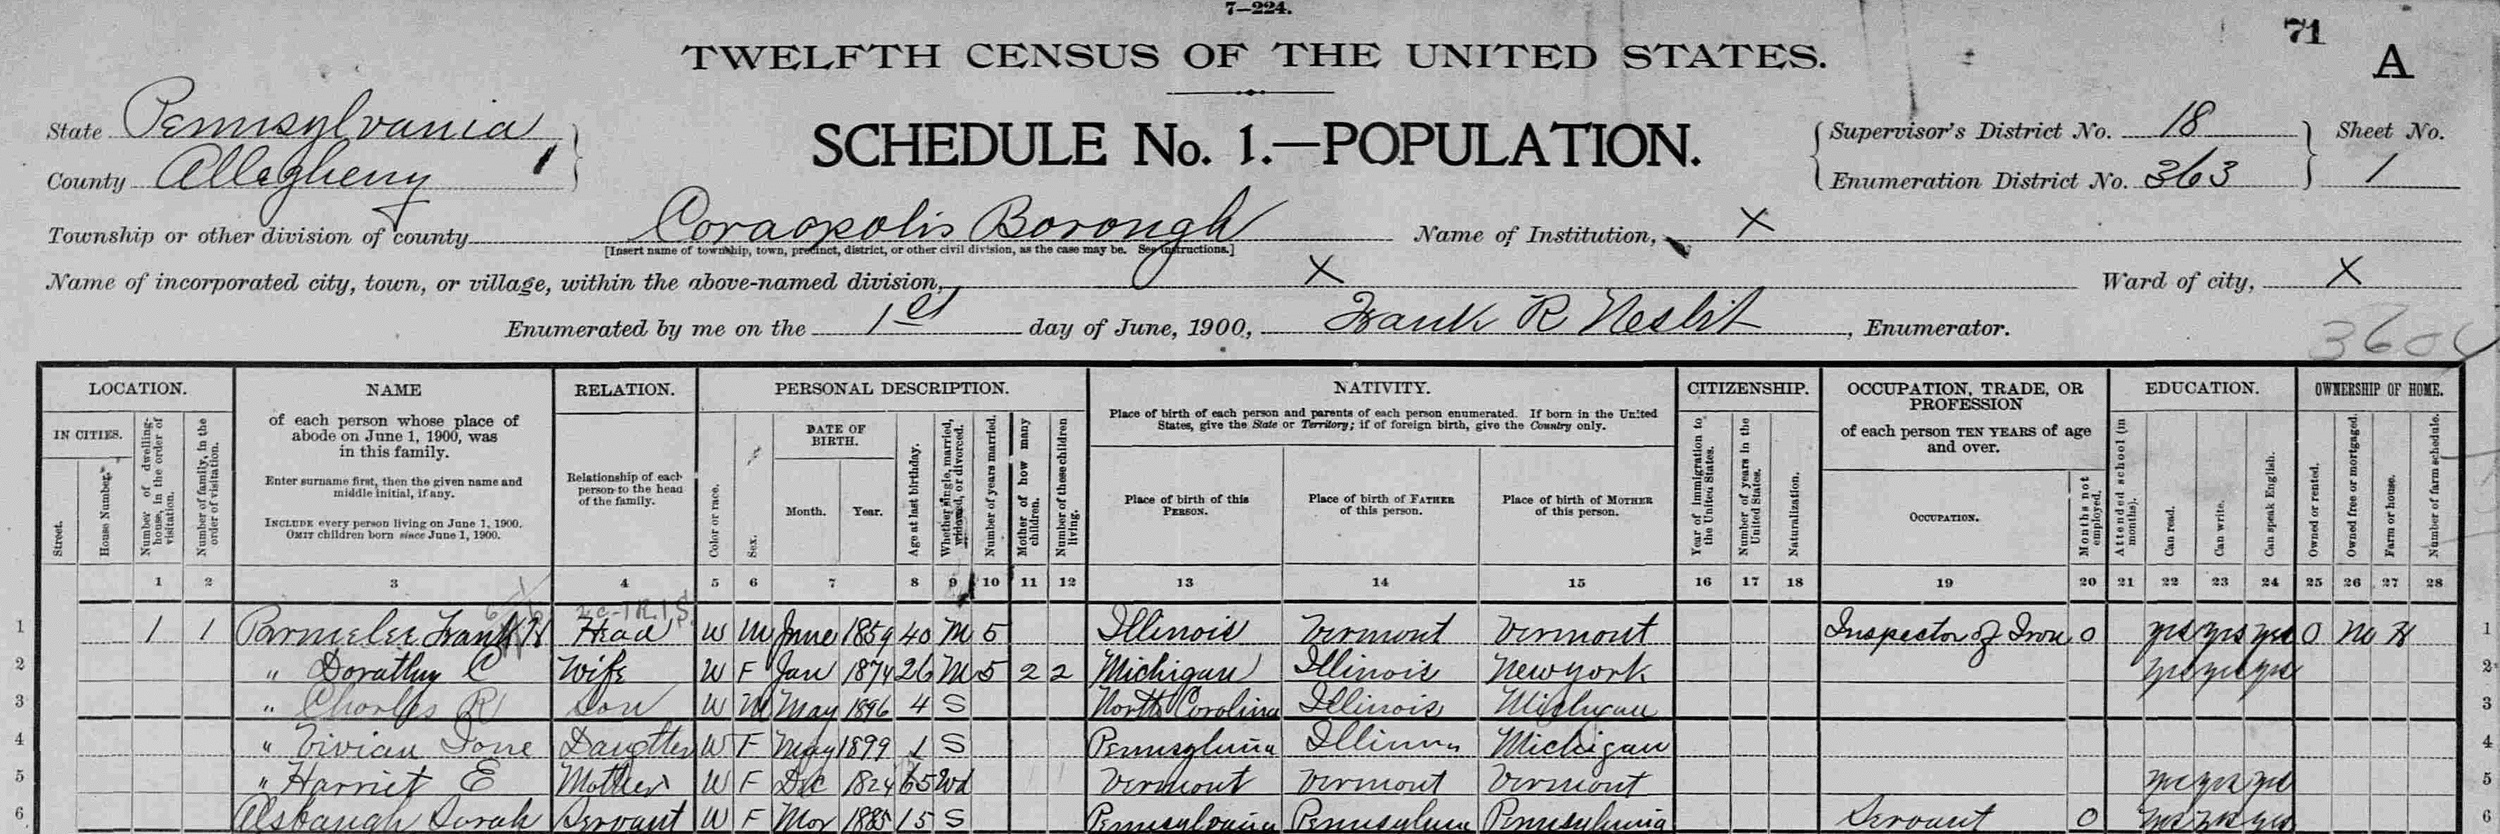 7—224.
71
A
TWELFTH CENSUS OF THE UNITED STATES.
SCHEDULE No. 1.—POPULATION.
State Pennsylvania
County Allegheny
Supervisor's District No. 18
Enumeration District No. 363
Sheet No.
1
Township or other division of county Coraopolis Borough
Name of Institution, X
[Insert name of township, town, precinct, district, or other civil division, as the case may be. See instructions.]
Name of incorporated city, town, or village, within the above-named division, X
Ward of city, X
Enumerated by me on the 1st day of June, 1900, Frank R Nesbit, Enumerator.
LOCATION.
IN CITIES.
Street.
House Number.
Number of dwelling-house, in the order of visitation.
Number of family, in the order of visitation.
NAME
of each person whose place of abode on June 1, 1900, was in this family.
Enter surname first, then the given name and middle initial, if any.
INCLUDE every person living on June 1, 1900.
OMIT children born since June 1, 1900.
RELATION.
Relationship of each person to the head of the family.
PERSONAL DESCRIPTION.
Color or race.
Sex.
DATE OF BIRTH.
Month.
Year.
Age at last birthday.
Whether single, married, widowed, or divorced.
Number of years married.
Mother of how many children.
Number of these children living.
NATIVITY.
Place of birth of each person and parents of each person enumerated. If born in the United States, give the State or Territory; if of foreign birth, give the Country only.
Place of birth of this PERSON.
Place of birth of FATHER of this person.
Place of birth of MOTHER of this person.
CITIZENSHIP.
Year of immigration to the United States.
Number of years in the United States.
Naturalization.
OCCUPATION, TRADE, OR PROFESSION
of each person TEN YEARS of age and over.
OCCUPATION.
Months not employed.
EDUCATION.
Attended school (in months).
Can read.
Can write.
Can speak English.
OWNERSHIP OF HOME.
Owned or rented.
Owned free or mortgaged.
Farm or house.
Number of farm schedule.
1 2 3 4 5 6 7 8 9 10 11 12 13 14 15 16 17 18 19 20 21 22 23 24 25 26 27 28
1 1 1 Parmelee Frank H Head W M June 1859 40 M 5 Illinois Vermont Vermont Inspector of Iron 0 yes yes yes O M H 1
2 " Dorathy C Wife W F Jan 1874 26 M 5 2 2 Michigan Illinois New York yes yes yes 2
3 " Charles R Son W M May 1896 4 S North Carolina Illinois Michigan 3
4 " Vivian Ione Daughter W F May 1899 1 S Pennsylvania Illinois Michigan 4
5 " Harriet E Mother W F Dec 1824 65 Wd Vermont Vermont Vermont yes yes yes 5
6 Alsbaugh Sarah Servant W F Mar 1885 15 S Pennsylvania Pennsylvania Pennsylvania Servant 0 yes yes yes 6